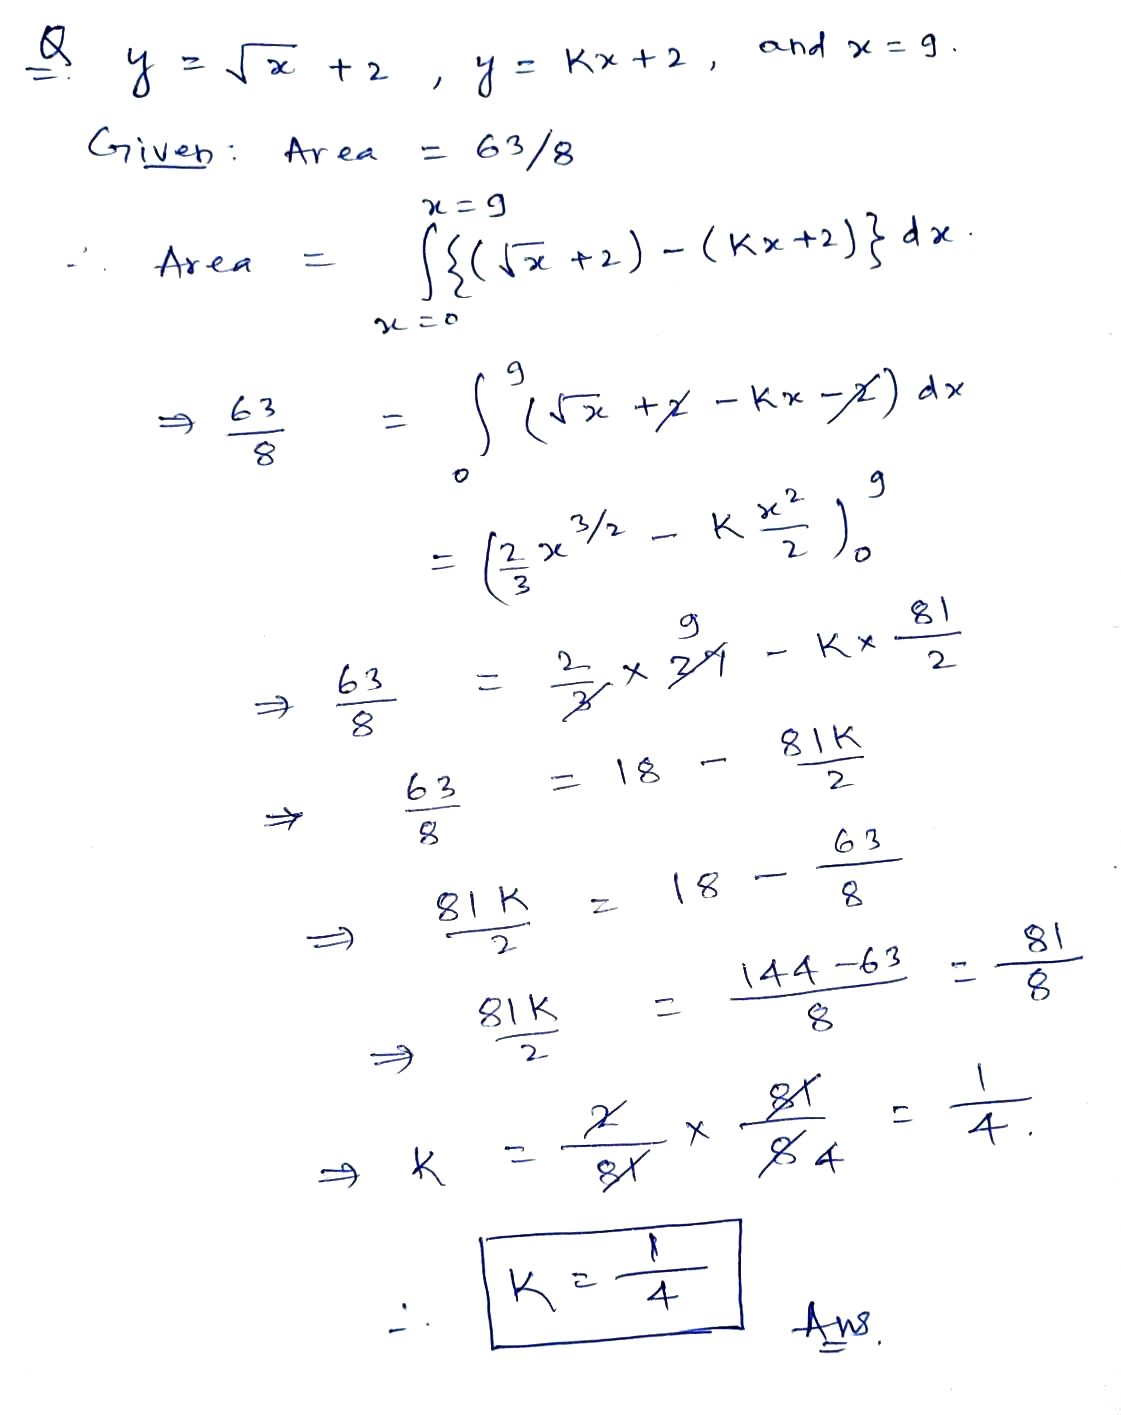 Q. y = √x + 2 , y = Kx + 2 , and x = 9 .
Given : Area = 63/8
∴ Area = ∫_{x=0}^{x=9} {(√x + 2) - (Kx + 2)} dx .
⇒ 63/8 = ∫_0^9 (√x + 2 - Kx - 2) dx
= (2/3 x^{3/2} - K x^2/2)_0^9
⇒ 63/8 = 2/3 × 27 9 - K × 81/2
⇒ 63/8 = 18 - 81K/2
⇒ 81K/2 = 18 - 63/8
⇒ 81K/2 = (144 - 63)/8 = 81/8
⇒ K = 2/81 × 81/8 4 = 1/4 .
∴ K = 1/4 Ans.